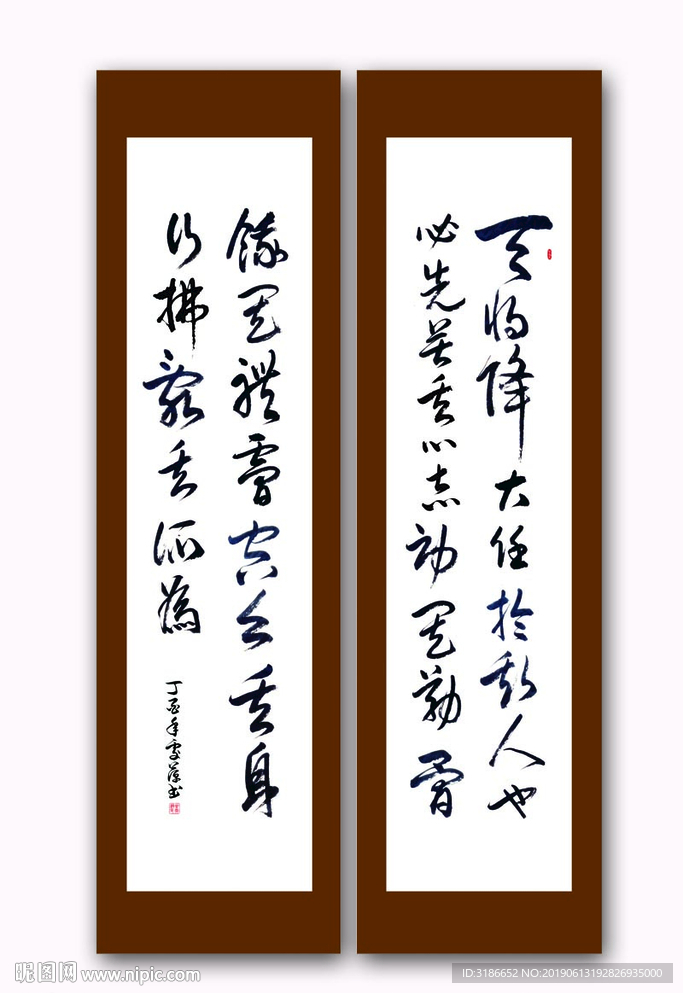 天將降大任於斯人也
必先苦其心志勞其筋骨
餓其體膚空乏其身
行拂亂其所為
丁酉年
昵图网 www.nipic.com
ID:3186652 NO:20190613192826935000